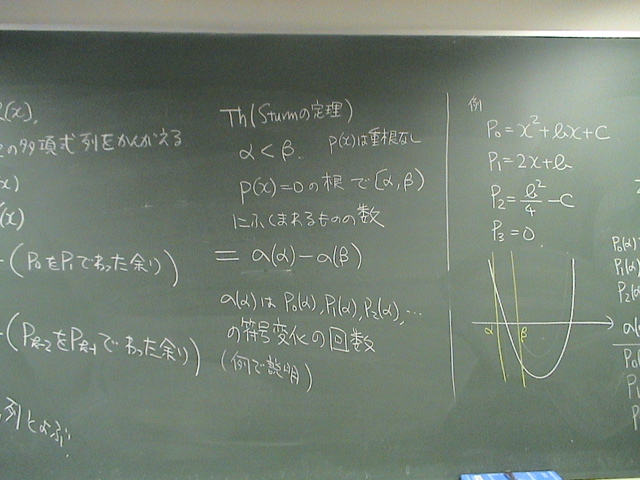 (x).
の多項式列をかんがえる
(x)
(x)
-(P₀をP₁でわった余り)
-(Pₖ₋₂をPₖ₋₁でわった余り)
列とよぶ.
Th(Sturmの定理)
α < β. P(x)は重根なし
P(x)=0の根で[α,β)
にふくまれるものの数
= a(α)-a(β)
a(α)はP₀(α),P₁(α),P₂(α),…
の符号変化の回数
(例で説明)
例
P₀=x²+bx+c
P₁=2x+b
P₂=b²/4-c
P₃=0.
α β
P₀(α)
P₁(α)
P₂(α)
a(α)
P₀
P₁
P